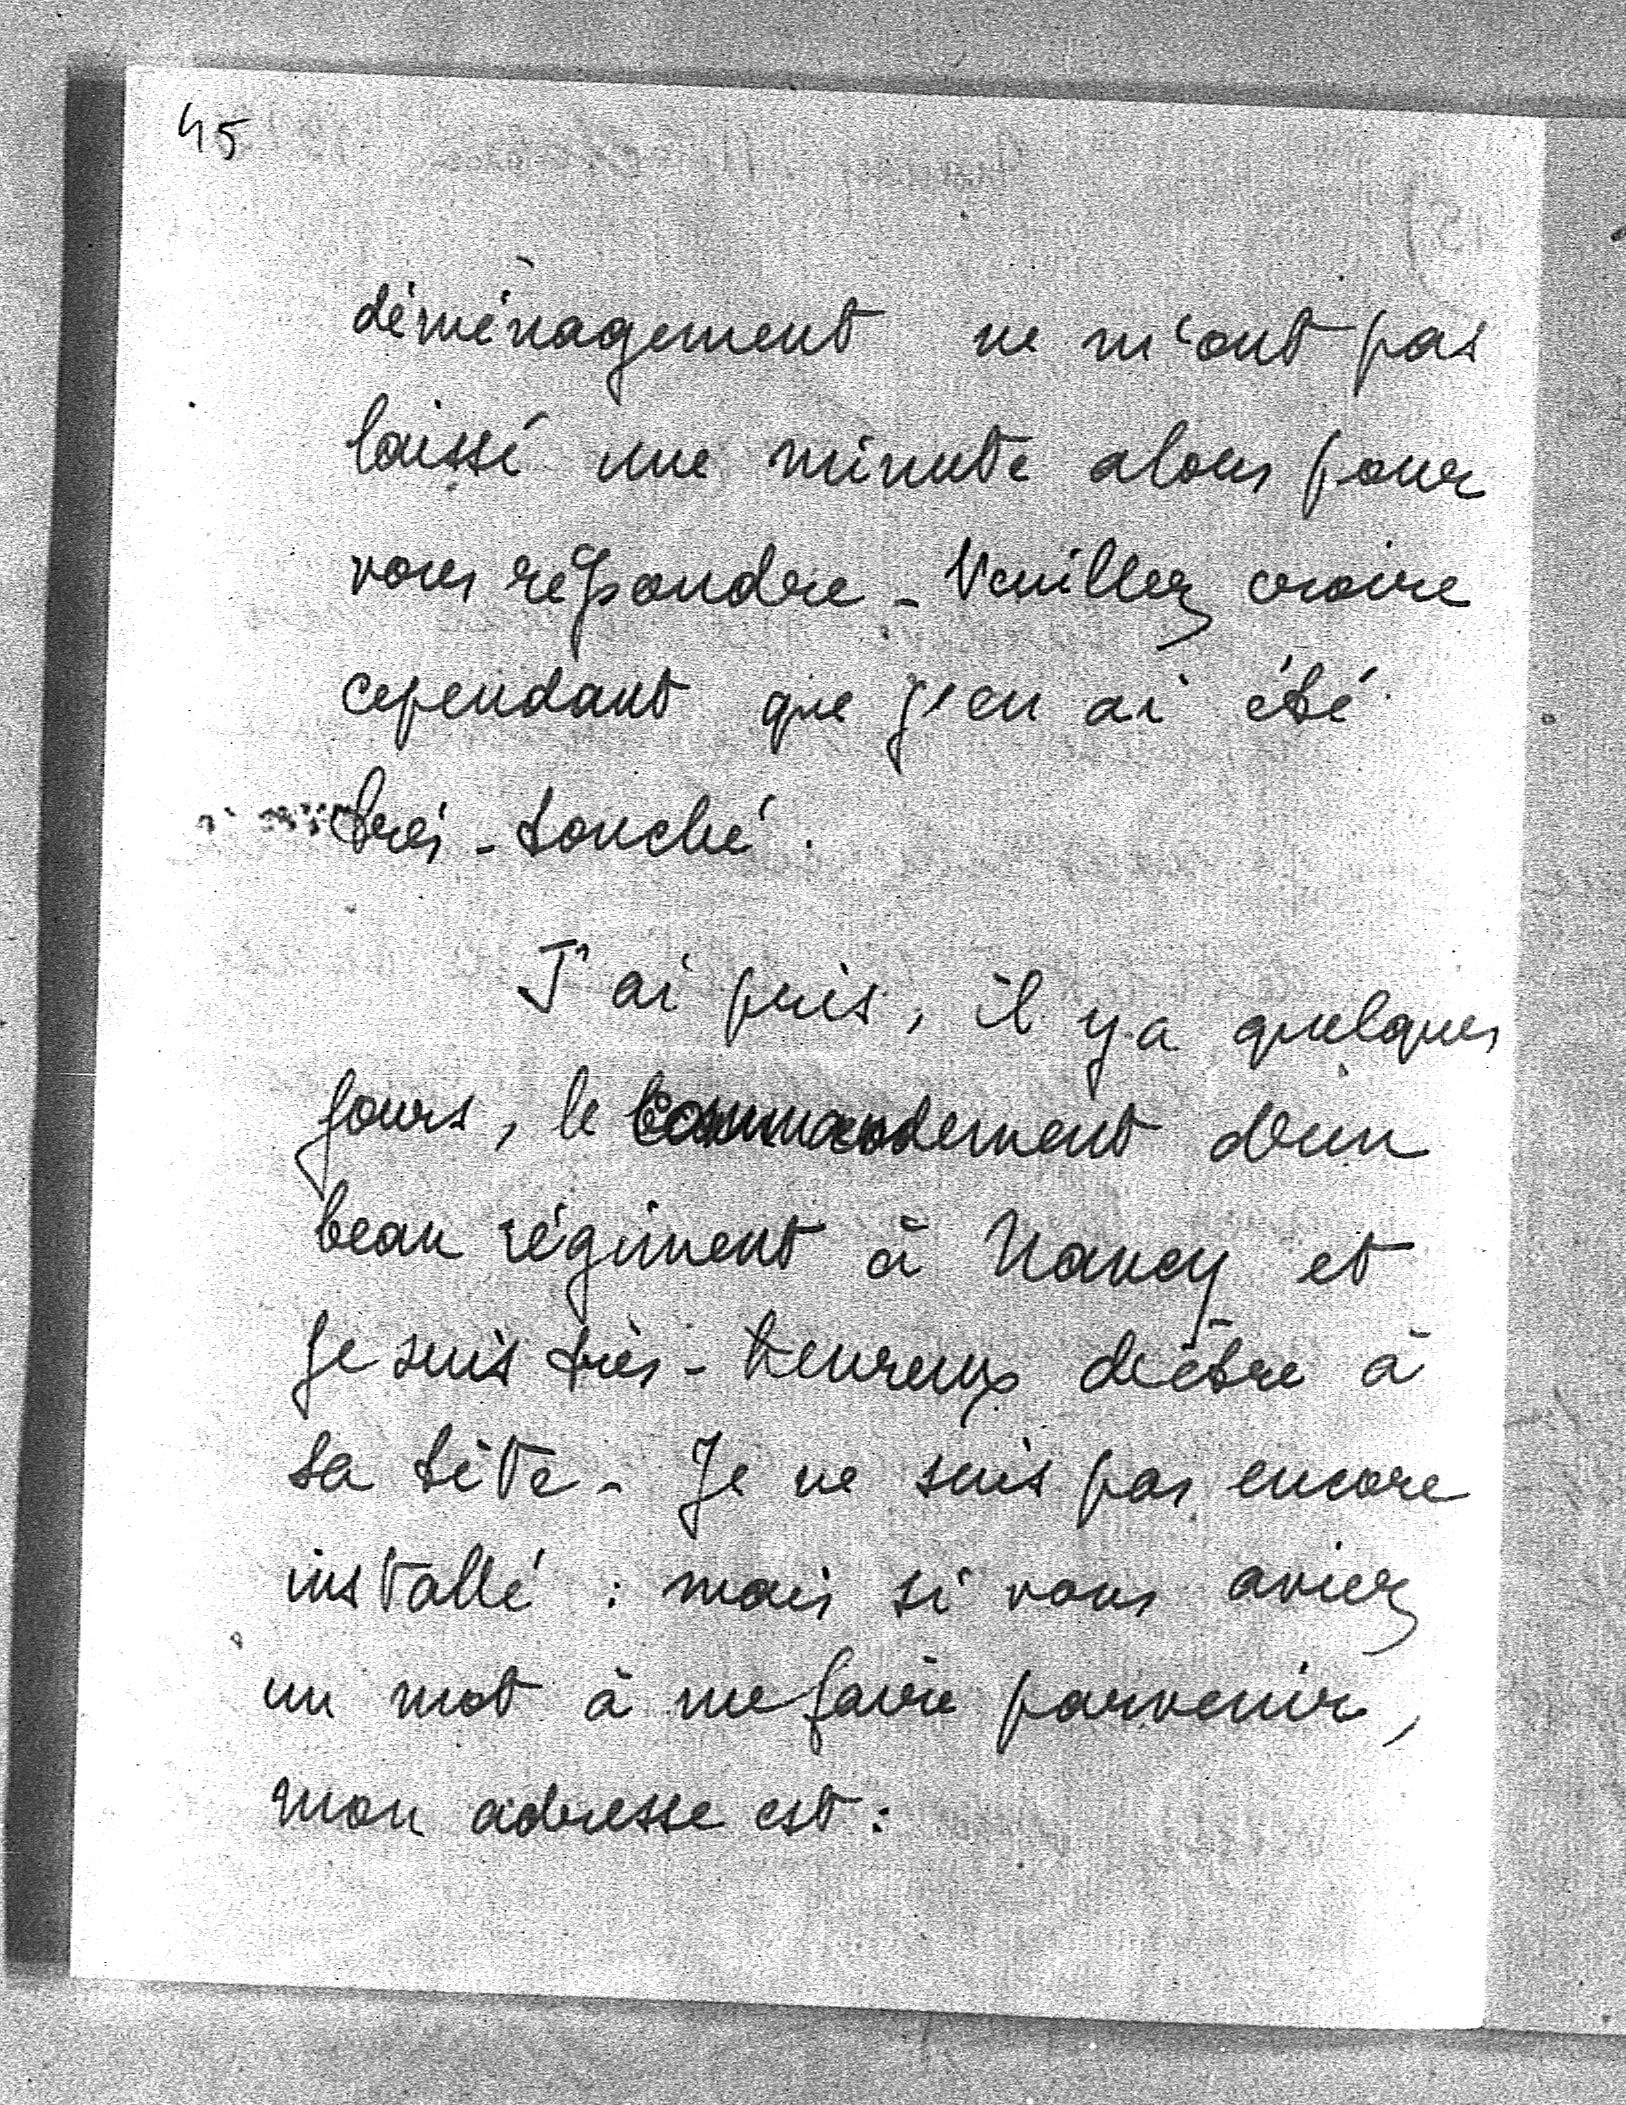 45
déménagement ne m'ont pas
laissé une minute alors pour
vous répondre - Veuillez croire
cependant que j'en ai été
très - touché.
J'ai pris, il y a quelques
jours, le Commandement d'un
beau régiment à Nancy et
je suis très - heureux d'être à
sa tête - Je ne suis pas encore
installé : mais si vous aviez
un mot à me faire parvenir,
mon adresse est :